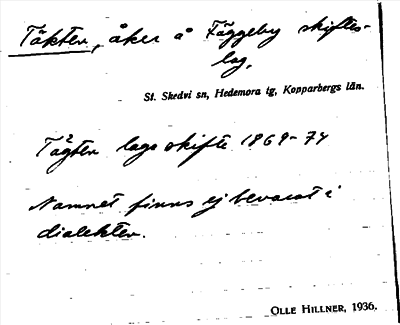 Täkten, åker å Fäggeby skiftes-
lag.
St. Skedvi sn, Hedemora tg, Kopparbergs län.
Tägten laga skifte 1869-74
Namnet finns ej bevarat i
dialekten.
OLLE HILLNER, 1936.